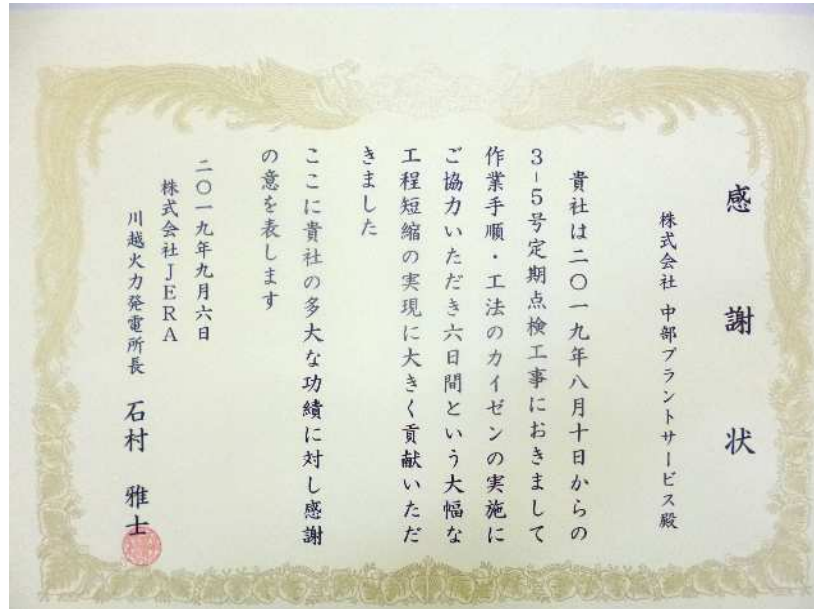 感謝状
株式会社 中部プラントサービス殿
貴社は二〇一九年八月十日からの
3-5号定期点検工事におきまして
作業手順・工法のカイゼンの実施に
ご協力いただき六日間という大幅な
工程短縮の実現に大きく貢献いただ
きました
ここに貴社の多大な功績に対し感謝
の意を表します
二〇一九年九月六日
株式会社JERA
川越火力発電所長 石村 雅士